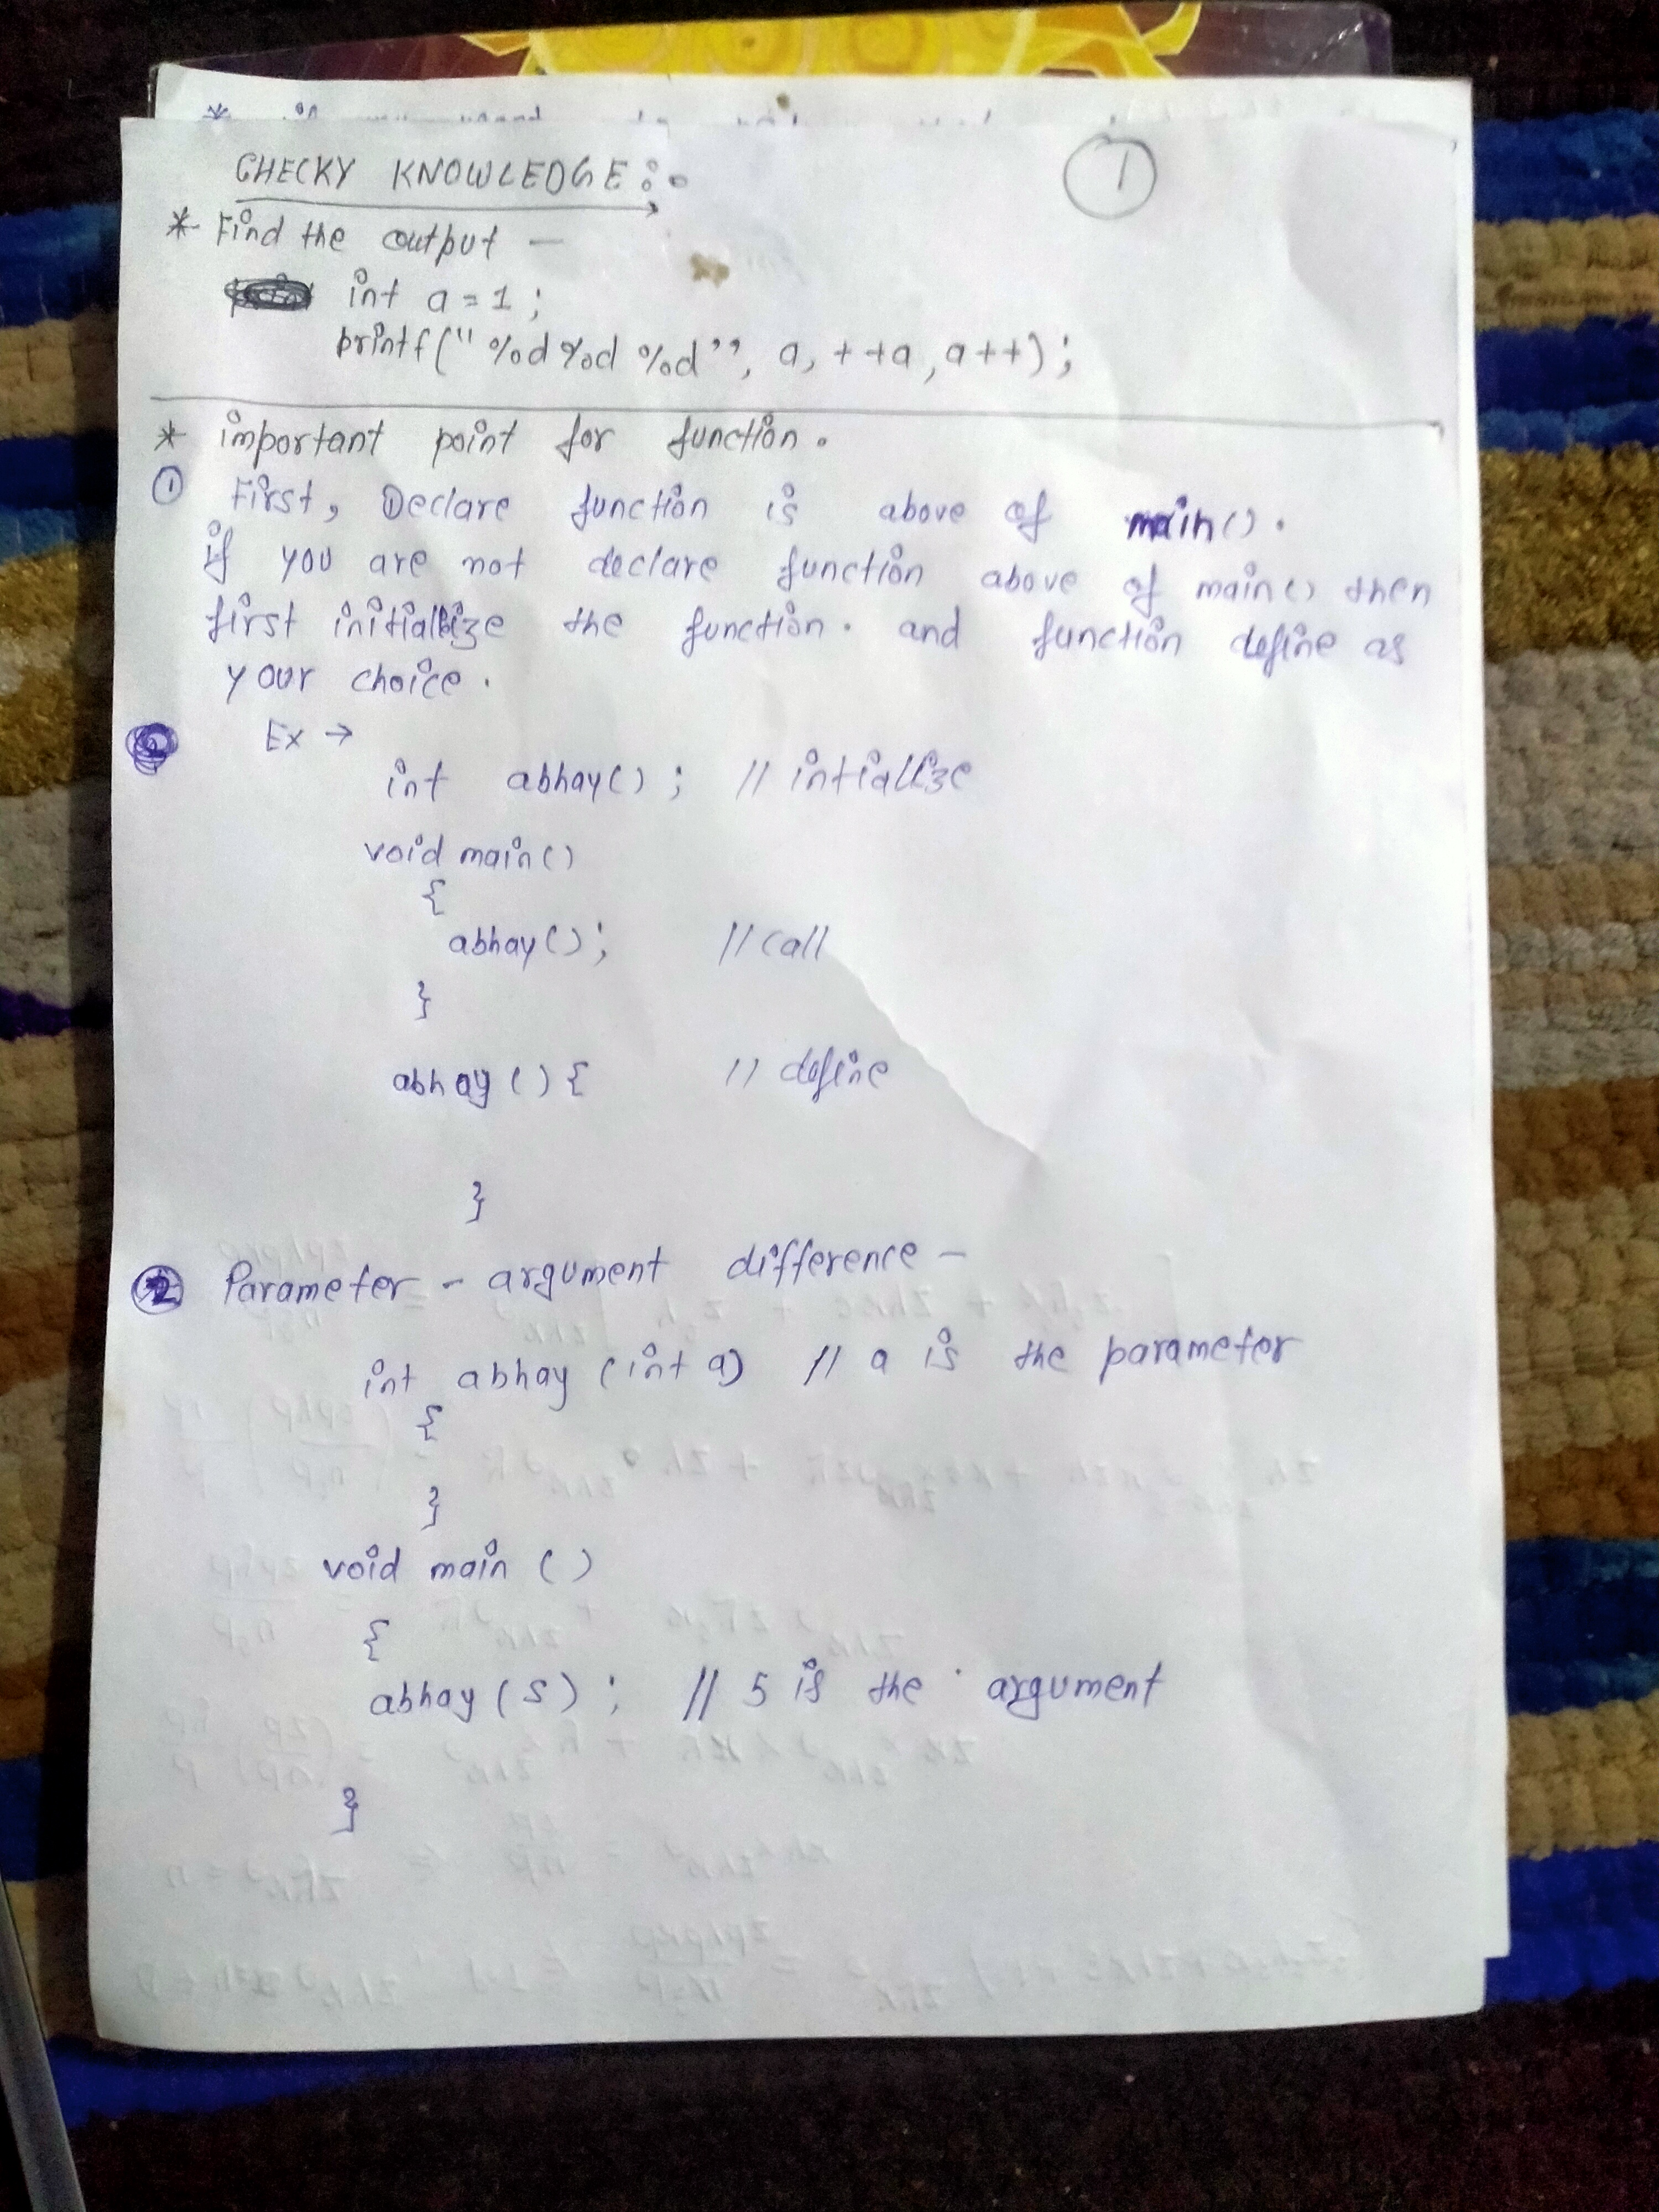 CHECKY KNOWLEDGE :-
1
* Find the output —
int a = 1 ;
printf(" %d %d %d ", a, ++a, a++) ;
* important point for function .
① First, Declare function is above of main() .
if you are not declare function above of main() then
first initialize the function . and function define as
your choice .
Ex →
int abhay() ; // intialize
void main()
{
abhay() ; // call
}
abhay () { // define
}
② Parameter - argument difference —
int abhay (int a) // a is the parameter
{
}
void main ()
{
abhay (5) ; // 5 is the argument
}